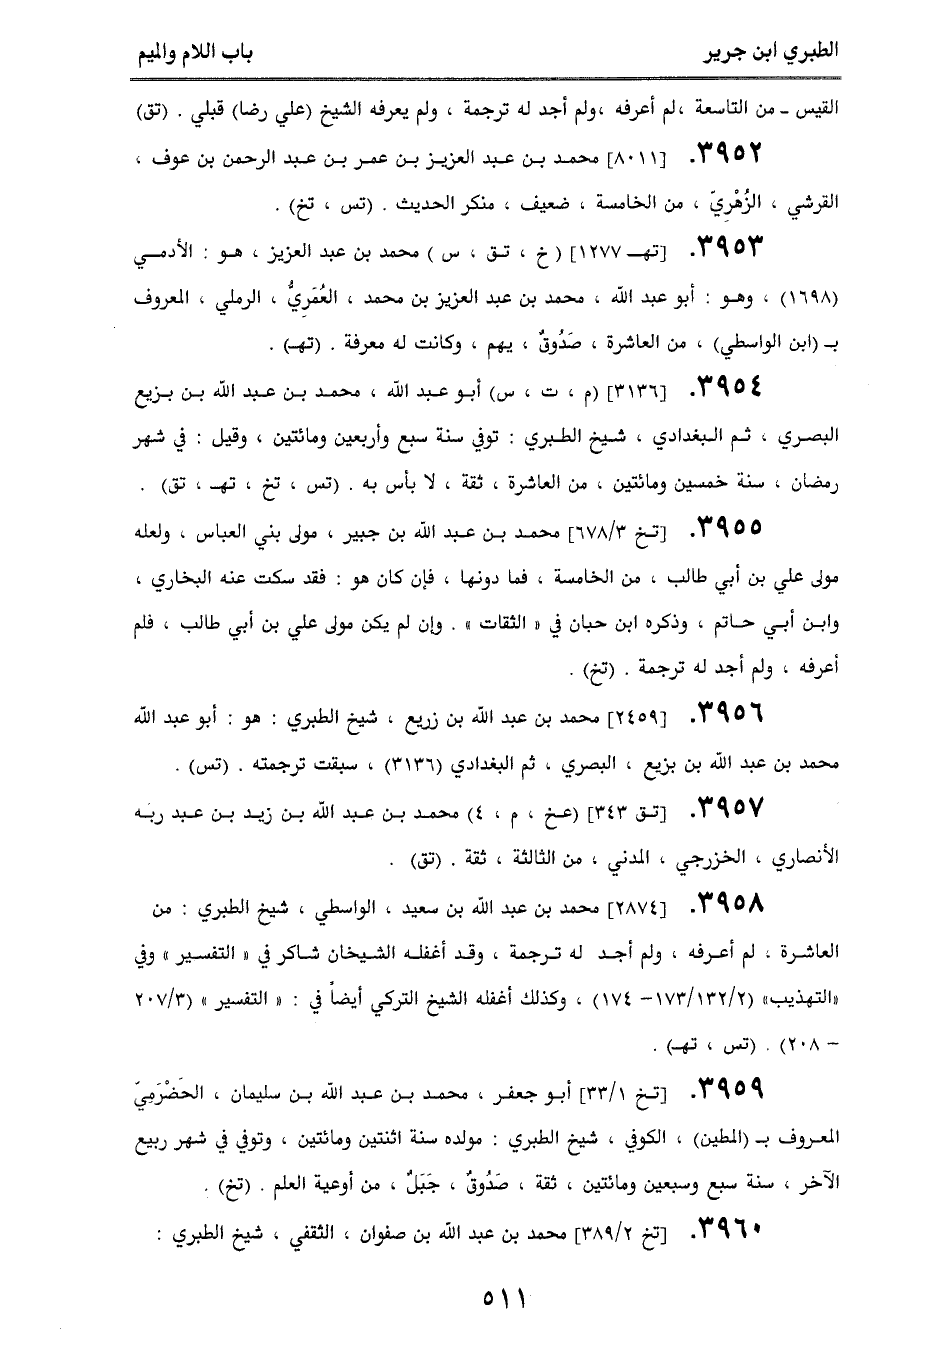 الطبري ابن جرير
باب اللام والميم
القيس ـ من التاسعة ،لم أعرفه ،ولم أجد له ترجمة ، ولم يعرفه الشيخ (علي رضا) قبلي . (تق)
٣٩٥٢. [٨٠١١] محمد بن عبد العزيز بن عمر بن عبد الرحمن بن عوف ،
القرشي ، الزُهْريّ ، من الخامسة ، ضعيف ، منكر الحديث . (تس ، تخ) .
٣٩٥٣. [تهـ ١٢٧٧] ( خ ، تق ، س ) محمد بن عبد العزيز ، هو : الأدمي
(١٦٩٨) ، وهو : أبو عبد الله ، محمد بن عبد العزيز بن محمد ، العُمَريُّ ، الرملي ، المعروف
بـ (ابن الواسطي) ، من العاشرة ، صَدُوقٌ ، يهم ، وكانت له معرفة . (تهـ) .
٣٩٥٤. [٣١٣٦] (م ، ت ، س) أبو عبد الله ، محمد بن عبد الله بن بزيع
البصري ، ثم البغدادي ، شيخ الطبري : توفي سنة سبع وأربعين ومائتين ، وقيل : في شهر
رمضان ، سنة خمسين ومائتين ، من العاشرة ، ثقة ، لا بأس به . (تس ، تخ ، تهـ ، تق) .
٣٩٥٥. [تخ ٦٧٨/٣] محمد بن عبد الله بن جبير ، مولى بني العباس ، ولعله
مولى علي بن أبي طالب ، من الخامسة ، فما دونها ، فإن كان هو : فقد سكت عنه البخاري ،
وابن أبي حاتم ، وذكره ابن حبان في « الثقات » . وإن لم يكن مولى علي بن أبي طالب ، فلم
أعرفه ، ولم أجد له ترجمة . (تخ) .
٣٩٥٦. [٢٤٥٩] محمد بن عبد الله بن زريع ، شيخ الطبري : هو : أبو عبد الله
محمد بن عبد الله بن بزيع ، البصري ، ثم البغدادي (٣١٣٦) ، سبقت ترجمته . (تس) .
٣٩٥٧. [تق ٣٤٣] (عخ ، م ، ٤) محمد بن عبد الله بن زيد بن عبد ربه
الأنصاري ، الخزرجي ، المدني ، من الثالثة ، ثقة . (تق) .
٣٩٥٨. [٢٨٧٤] محمد بن عبد الله بن سعيد ، الواسطي ، شيخ الطبري : من
العاشرة ، لم أعرفه ، ولم أجد له ترجمة ، وقد أغفله الشيخان شاكر في « التفسير » وفي
«التهذيب» (١٧٣/١٣٢/٢– ١٧٤) ، وكذلك أغفله الشيخ التركي أيضاً في : « التفسير » (٢٠٧/٣
– ٢٠٨) . (تس ، تهـ) .
٣٩٥٩. [تخ ٣٣/١] أبو جعفر ، محمد بن عبد الله بن سليمان ، الحَضْرَمِيّ
المعروف بـ (المطين) ، الكوفي ، شيخ الطبري : مولده سنة اثنتين ومائتين ، وتوفي في شهر ربيع
الآخر ، سنة سبع وسبعين ومائتين ، ثقة ، صَدُوقٌ ، جَبَلٌ ، من أوعية العلم . (تخ) .
٣٩٦٠. [تخ ٣٨٩/٢] محمد بن عبد الله بن صفوان ، الثقفي ، شيخ الطبري :
٥١١